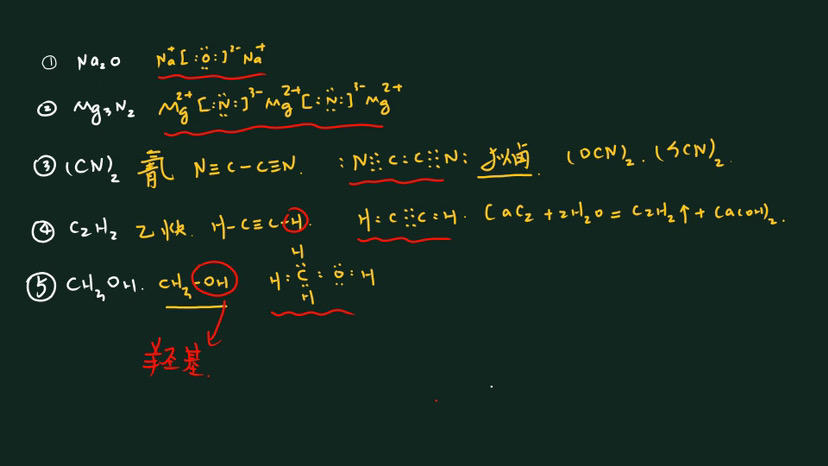 ① Na₂O Na⁺[:Ö:]²⁻Na⁺
② Mg₃N₂ Mg²⁺[:N:]³⁻Mg²⁺[:N:]³⁻Mg²⁺
③ (CN)₂ 氰 N≡C-C≡N. :N⋮⋮C:C⋮⋮N: 拟卤. (OCN)₂. (SCN)₂.
④ C₂H₂ 乙炔. H-C≡C-H. H:C⋮⋮C:H. CaC₂+2H₂O=C₂H₂↑+Ca(OH)₂.
H
⑤ CH₃OH. CH₃-OH H:C:O:H
H
羟基.